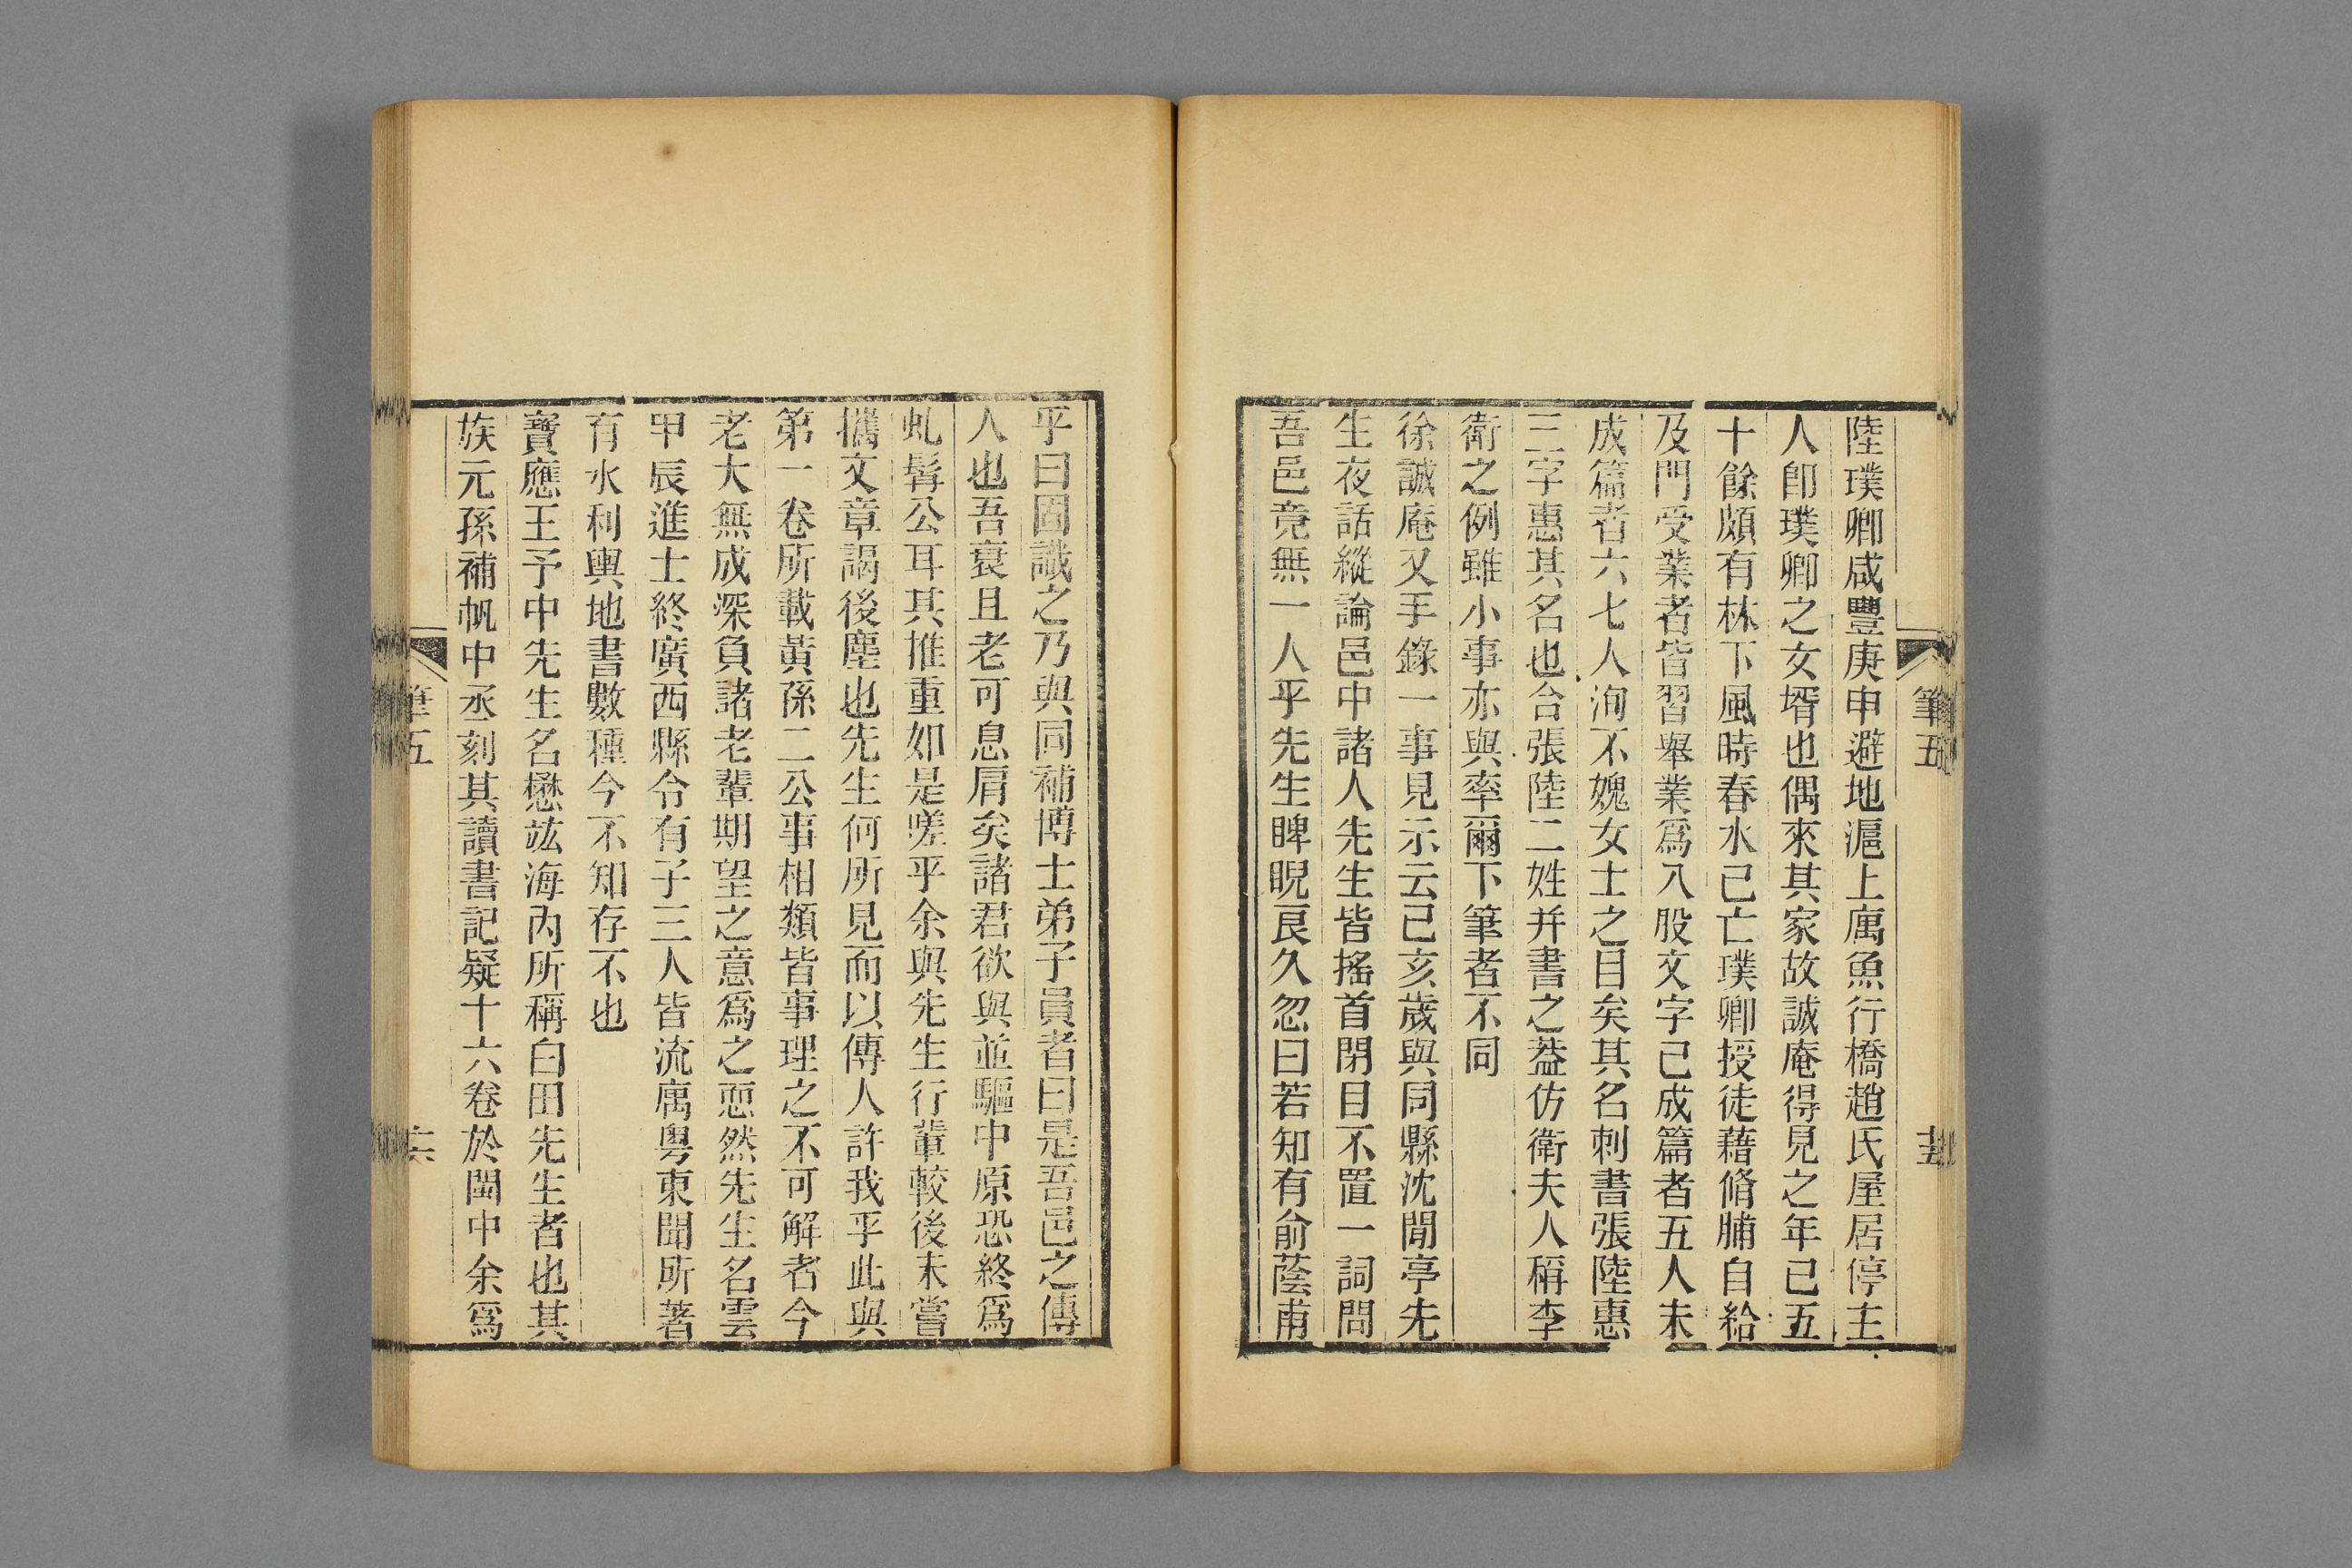 筆五
十五
陸璞卿咸豐庚申避地滬上寓魚行橋趙氏屋居停主
人卽璞卿之女壻也偶來其家故誠庵得見之年已五
十餘頗有林下風時春水已亡璞卿授徒藉脩脯自給
及門受業者皆習舉業爲八股文字已成篇者五人未
成篇者六七人洵不媿女士之目矣其名刺書張陸惠
三字惠其名也合張陸二姓幷書之葢仿衛夫人稱李
衛之例雖小事亦與率爾下筆者不同
徐誠庵又手錄一事見示云己亥歲與同縣沈閒亭先
生夜話縱論邑中諸人先生皆搖首閉目不置一詞問
吾邑竟無一人乎先生睥睨良久忽曰若知有俞蔭甫
乎曰固識之乃與同補博士弟子員者曰是吾邑之傳
人也吾衰且老可息肩矣諸君欲與並驅中原恐終爲
虬髯公耳其推重如是嗟乎余與先生行輩較後未嘗
攜文章謁後塵也先生何所見而以傳人許我乎此與
第一卷所載黃孫二公事相類皆事理之不可解者今
老大無成深負諸老輩期望之意爲之恧然先生名雲
甲辰進士終廣西縣令有子三人皆流寓粵東聞所著
有水利輿地書數種今不知存不也
寶應王予中先生名懋竑海內所稱白田先生者也其
族元孫補帆中丞刻其讀書記疑十六卷於閩中余爲
筆五
十六